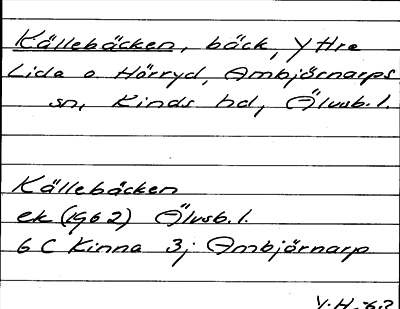 Källebäcken, bäck, Yttre
Lida o. Hörryd, Ambjörnarps
sn, Kinds hd, Älvsb. l.
Källebäcken
ek (1962) Älvsb. l.
6 C Kinna 3j Ambjörnarp
V. H. -63